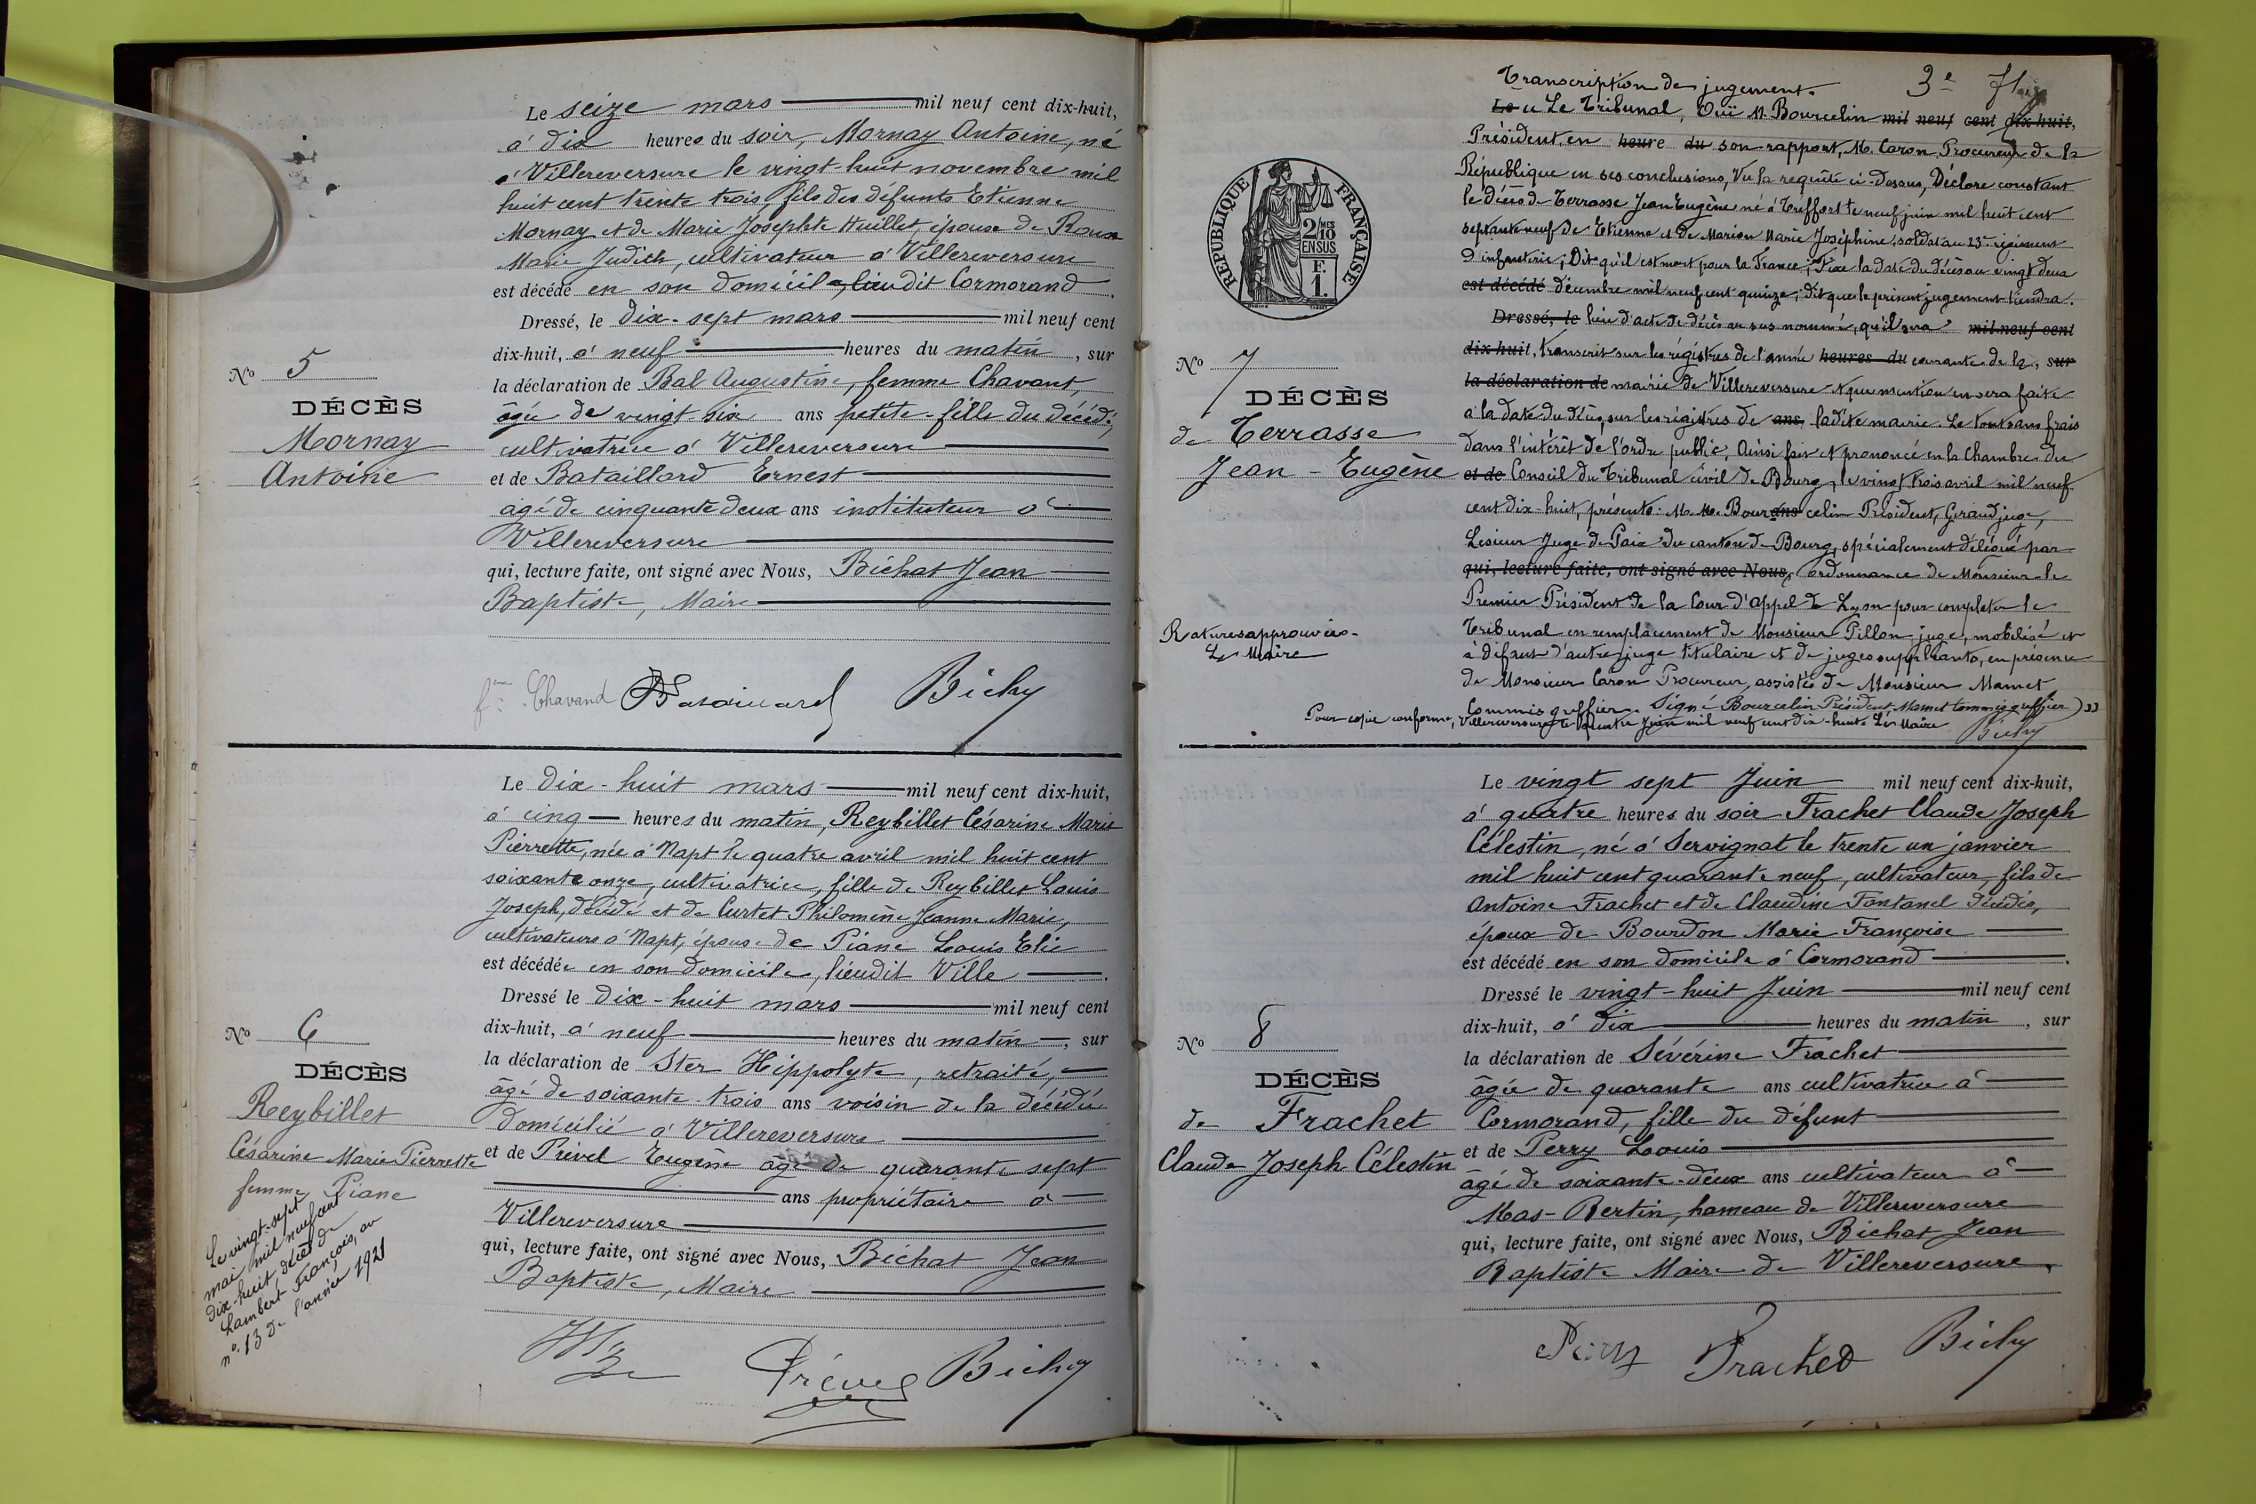 Le seize mars mil neuf cent dix-huit,
à dix heures du soir, Mornay Antoine, né
à Villereversure le vingt huit novembre mil
huit cent trente trois, fils des défunts Etienne
Mornay et de Marie Josephte Huillet, époux de Roux
Marie Judith, cultivateur à Villereversure
est décédé en son domicile, lieudit Cormorand.
Dressé, le dix-sept mars mil neuf cent
dix-huit, à neuf heures du matin, sur
la déclaration de Bal Augustine, femme Chavant,
âgée de vingt-six ans petite-fille du décédé,
cultivatrice à Villereversure
et de Bataillard Ernest
âgé de cinquante deux ans instituteur à
Villereversure
qui, lecture faite, ont signé avec Nous, Bichat Jean
Baptiste, Maire
No 5
DÉCÈS
Mornay
Antoine
fme Chavand Bataillard Bichat
Le dix-huit mars mil neuf cent dix-huit,
à cinq heures du matin, Reybillet Césarine Marie
Pierrette, née à Napt le quatre avril mil huit cent
soixante onze, cultivatrice, fille de Reybillet Louis
Joseph, décédé et de Curtet Philomène Jeanne Marie,
cultivateurs à Napt, épouse de Piane Louis Elie
est décédée en son domicile, lieudit Ville.
Dressé le dix-huit mars mil neuf cent
dix-huit, à neuf heures du matin, sur
la déclaration de Ster Hippolyte, retraité,
âgé de soixante-trois ans voisin de la décédée
domicilié à Villereversure
et de Prével Eugène âgé de quarante sept
ans propriétaire à
Villereversure
qui, lecture faite, ont signé avec Nous, Bichat Jean
Baptiste, Maire
No 6
DÉCÈS
Reybillet
Césarine Marie Pierrette
femme Piane
Le vingt-sept
mai mil neuf cent
dix-huit décès de
Lambert François, au
n° 13 de l'année 1921
Prével Bichat
3e
Transcription de jugement.
Le « Le Tribunal, Ouï M. Bourcelin mil neuf cent dix-huit,
Président en heure du son rapport, M. Caron Procureur de la
République en ses conclusions, Vu la requête ci-dessus, Déclare constant
le décès de Terrasse Jean Eugène né à Treffort le neuf juin mil huit cent
septante neuf de Etienne et de Marion Marie Joséphine, soldat au 23e régiment
d'infanterie; Dit qu'il est mort pour la France; Fixe la date du décès au vingt deux
est décédé décembre mil neuf cent quinze; dit que le présent jugement tiendra.
Dressé, le lieu d'acte de décès au sus nommé, qu'il sera mil neuf cent
dix-huit, transcrit sur les régistres de l'année heures du courante de la, sur
la déclaration de mairie de Villereversure et que mention en sera faite
à la date du décès, sur les régistres de ans, ladite mairie. Le tout sans frais
dans l'intérêt de l'ordre public, Ainsi fait et prononcé en la Chambre du
et de Conseil du Tribunal civil de Bourg, le vingt trois avril mil neuf
cent dix-huit, présents: M.M. Bour ans celin Président, Giraud juge,
Lesieur Juge de Paix du canton de Bourg, spécialement délégué par
qui, lecture faite, ont signé avec Nous, ordonnance de Monsieur le
Premier Président de la Cour d'appel de Lyon pour completer le
Tribunal en remplacement de Monsieur Pillon juge, mobilisé et
à défaut d'autre juge titulaire et de juges suppléants, en présence
de Monsieur Caron Procureur, assistés de Monsieur Mamet
Commis greffier. Signé Bourcelin Président, Mamet commis greffier »
Pour copie conforme, Villereversure le quatre Juin mil neuf cent dix-huit. Le Maire
Bichat
RÉPUBLIQUE FRANÇAISE
2/10 MES
EN SUS
F.
1.
No 7
DÉCÈS
de Terrasse
Jean-Eugène
Ratures approuvées.
Le Maire
Le vingt sept Juin mil neuf cent dix-huit,
à quatre heures du soir Frachet Claude Joseph
Célestin, né à Servignat le trente un janvier
mil huit cent quarante neuf, cultivateur, fils de
Antoine Frachet et de Claudine Fontanel décédés,
époux de Bourdon Marie Françoise
est décédé en son domicile à Cormorand.
Dressé le vingt-huit Juin mil neuf cent
dix-huit, à dix heures du matin, sur
la déclaration de Sévérine Frachet
âgée de quarante ans cultivatrice à
Cormorand, fille du défunt
et de Perry Louis
âgé de soixante-deux ans cultivateur à
Mas-Bertin, hameau de Villereversure
qui, lecture faite, ont signé avec Nous, Bichat Jean
Baptiste Maire de Villereversure.
No 8
DÉCÈS
de Frachet
Claude Joseph Célestin
Perry Frachet Bichat